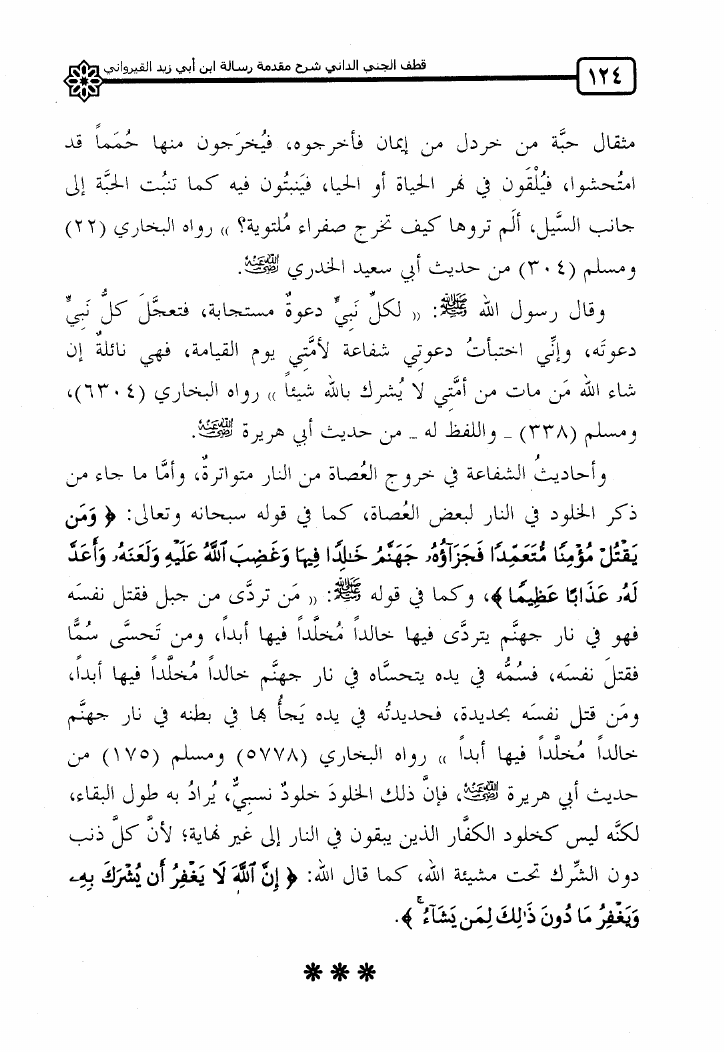 ١٢٤
قطف الجني الداني شرح مقدمة رسالة ابن أبي زيد القيرواني
مثقال حبَّة من خردل من إيمان فأخرجوه، فيُخرَجون منها حُمَماً قد
امتُحشوا، فيُلْقَون في نهر الحياة أو الحيا، فيَنبتُون فيه كما تنبُت الحبَّة إلى
جانب السَّيل، ألَم تروها كيف تخرج صفراء مُلتوية؟ )) رواه البخاري (٢٢)
ومسلم (٣٠٤) من حديث أبي سعيد الخدري رضي الله عنه.
وقال رسول الله ﷺ: (( لكلِّ نَبِيٍّ دعوةٌ مستجابة، فتعجَّلَ كلُّ نَبِيٍّ
دعوتَه، وإنِّي اختبأتُ دعوتِي شفاعة لأمَّتِي يوم القيامة، فهي نائلةٌ إن
شاء الله مَن مات من أمَّتِي لا يُشرك بالله شيئاً )) رواه البخاري (٦٣٠٤)،
ومسلم (٣٣٨) ـ واللفظ له ـ من حديث أبي هريرة رضي الله عنه.
وأحاديثُ الشفاعة في خروج العُصاة من النار متواترةٌ، وأمَّا ما جاء من
ذكر الخلود في النار لبعض العُصاة، كما في قوله سبحانه وتعالى: ﴿ وَمَن
يَقْتُلْ مُؤْمِنًا مُّتَعَمِّدًا فَجَزَآؤُهُۥ جَهَنَّمُ خَٰلِدًا فِيهَا وَغَضِبَ ٱللَّهُ عَلَيْهِ وَلَعَنَهُۥ وَأَعَدَّ
لَهُۥ عَذَابًا عَظِيمًا ﴾، وكما في قوله ﷺ: (( مَن تردَّى من جبل فقتل نفسَه
فهو في نار جهنَّم يتردَّى فيها خالداً مُخلَّداً فيها أبداً، ومن تَحسَّى سُمًّا
فقتلَ نفسَه، فسُمُّه في يده يتحسَّاه في نار جهنَّم خالداً مُخلَّداً فيها أبداً،
ومَن قتل نفسَه بحديدة، فحديدتُه في يده يَجأُ بها في بطنه في نار جهنَّم
خالداً مُخلَّداً فيها أبداً )) رواه البخاري (٥٧٧٨) ومسلم (١٧٥) من
حديث أبي هريرة رضي الله عنه، فإنَّ ذلك الخلودَ خلودٌ نسبِيٌّ، يُرادُ به طول البقاء،
لكنَّه ليس كخلود الكفَّار الذين يبقون في النار إلى غير نهاية؛ لأنَّ كلَّ ذنب
دون الشِّرك تحت مشيئة الله، كما قال الله: ﴿ إِنَّ ٱللَّهَ لَا يَغْفِرُ أَن يُشْرَكَ بِهِۦ
وَيَغْفِرُ مَا دُونَ ذَٰلِكَ لِمَن يَشَآءُ ۚ ﴾.
* * *